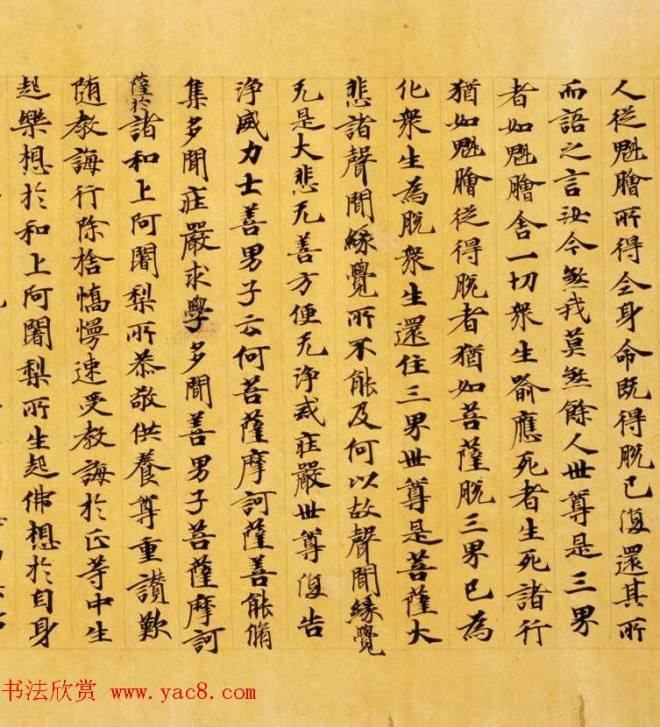 人從魁膾所得全身命既得脫已復還其所
而語之言汝今煞我莫煞餘人世尊是三界
者如魁膾舍一切衆生喻應死者生死諸行
猶如魁膾從得脫者猶如菩薩脫三界已為
化衆生為脫衆生還住三界世尊是菩薩大
悲諸聲聞緣覺所不能及何以故聲聞緣覺
无是大悲无善方便无淨戒莊嚴世尊復告
淨威力士善男子云何菩薩摩訶薩善能脩
集多聞莊嚴求學多聞善男子菩薩摩訶
薩於諸和上阿闍梨所恭敬供養尊重讃歎
随教誨行除捨憍慢速受教誨於正等中生
起樂想於和上阿闍梨所生起佛想於自身
书法欣赏 www.yac8.com